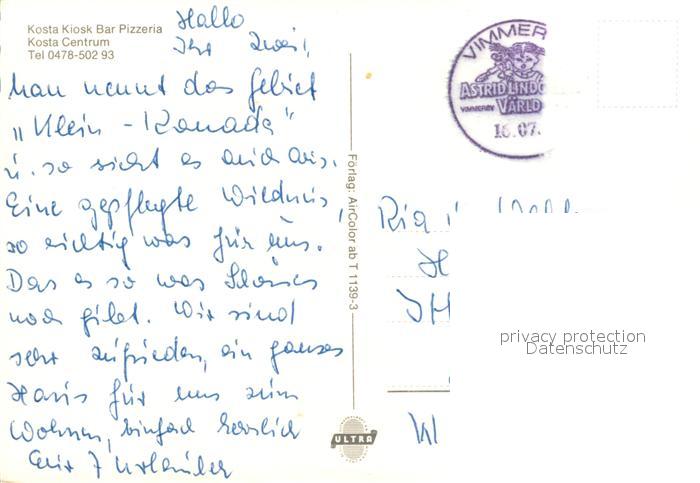 Kosta Kiosk Bar Pizzeria
Kosta Centrum
Tel 0478-502 93
Hallo
Ihr zwei,
man nennt das Gebiet
„Klein - Kanada"
u. so sieht es auch aus.
Eine gepflegte Wildnis,
so richtig was für uns.
Das es so was Schönes
noch gibt. Wir sind
sehr zufrieden, ein ganzes
Haus für uns zum
Wohnen, einfach herrlich
Eure 7 Urlauber
Förlag: AirColor ab T 1139-3
ULTRA
VIMMER
ASTRID LINDG
VIMMERBY VÄRLD
16.07.
Ria
privacy protection
Datenschutz